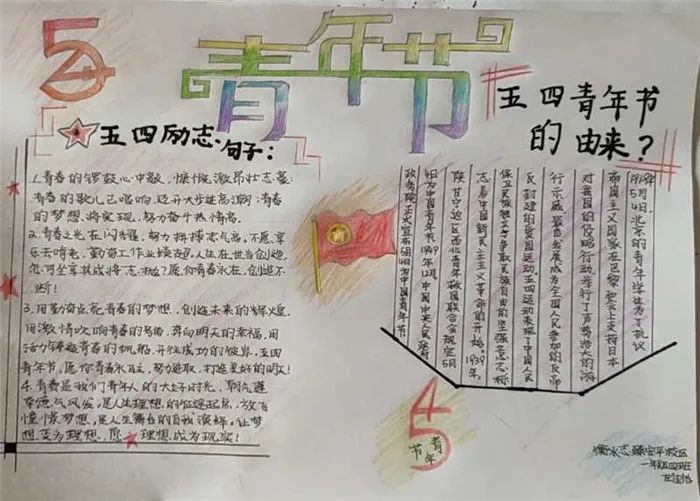 54
青年节
五四励志句子:
1.青春的锣鼓心中敲,慷慨激昂壮志豪
青春的歌儿已唱响,迈开大步逐高潮;青春
的梦想将实现,努力奋斗热情高。
2.青春之光在闪耀,努力拼搏志气高,不愿享
乐去啃老,勤奋工作业绩超,人生在世当创造,
怎可坐享其成将志抛?愿你青春永在,创造不
断!
3.用勤奋点亮青春的梦想,创造未来的辉煌,
用激情吹响青春的号角,奔向明天的幸福,用
活力铸造青春的帆船,开往成功的彼岸,五四
青年节,愿你青春永驻,努力进取,打造美好的明天!
4.青春是我们年人的大好时光,朝气蓬
勃意气风发,是人生理想的征途起点,放飞
憧憬梦想,是人生舞台的自我演绎,让梦
想变为理想,愿理想成为现实!
五四青年节
的由来?
1919年
5月4日,北京的青年学生为了抗议
帝国主义国家在巴黎和会上支持日本
对我国的侵略行动举行了声势浩大的游
行示威并发展成为全国人民参加的反帝
反封建的爱国运动。五四运动表现了中国人民
保卫民族独立争取民族自由的坚强意志标
志着中国新民主主义革命的开始。1939年,
陕甘宁边区西北青年救国联合会规定5月
4日为中国青年节1949年12月,中国中央人民政府
政务院正式宣布5月4日为中国青年节
54
青年
节
衡水志臻安平校区
一年级四班